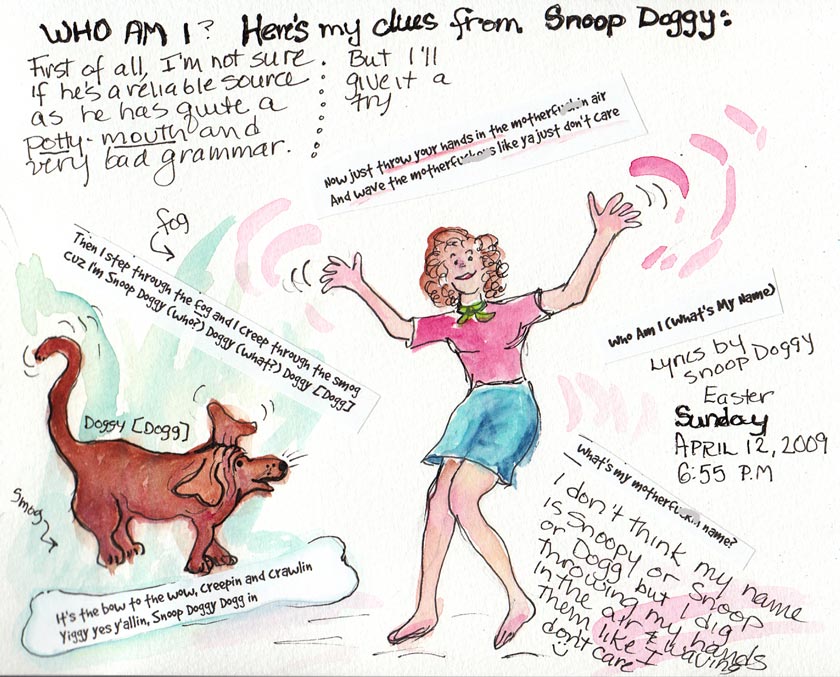 WHO AM I? Here's my clues from Snoop Doggy:
First of all, I'm not sure
if he's a reliable source
as he has quite a
potty-mouth and
very bad grammar.
But I'll
give it a
try
Now just throw your hands in the motherfu in air
And wave the motherfu s like ya just don't care
fog
Then I step through the fog and I creep through the smog
cuz I'm Snoop Doggy (Who?) Doggy (What?) Doggy [Dogg]
Who Am I (What's My Name)
Lyrics by
Snoop Doggy
Easter
Sunday
APRIL 12, 2009
6:55 P.M
Doggy [Dogg]
Smog
It's the bow to the wow, creepin and crawlin
Yiggy yes y'allin, Snoop Doggy Dogg in
What's my motherfu name?
I don't think my name
is Snoopy or Snoop
or Dogg but I dig
throwing my hands
in the air & waving
them like I
don't care